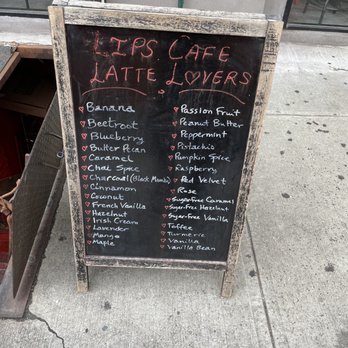 LIPS CAFE
LATTE LOVERS
Banana
Beetroot
Blueberry
Butter Pecan
Caramel
Chai Spice
Charcoal (Black Mamba)
Cinnamon
Coconut
French Vanilla
Hazelnut
Irish Cream
Lavender
Mango
Maple
Passion Fruit
Peanut Butter
Peppermint
Pistachio
Pumpkin Spice
Raspberry
Red Velvet
Rose
Sugarfree Caramel
Sugarfree Hazelnut
Sugarfree Vanilla
Toffee
Turmeric
Vanilla
Vanilla Bean